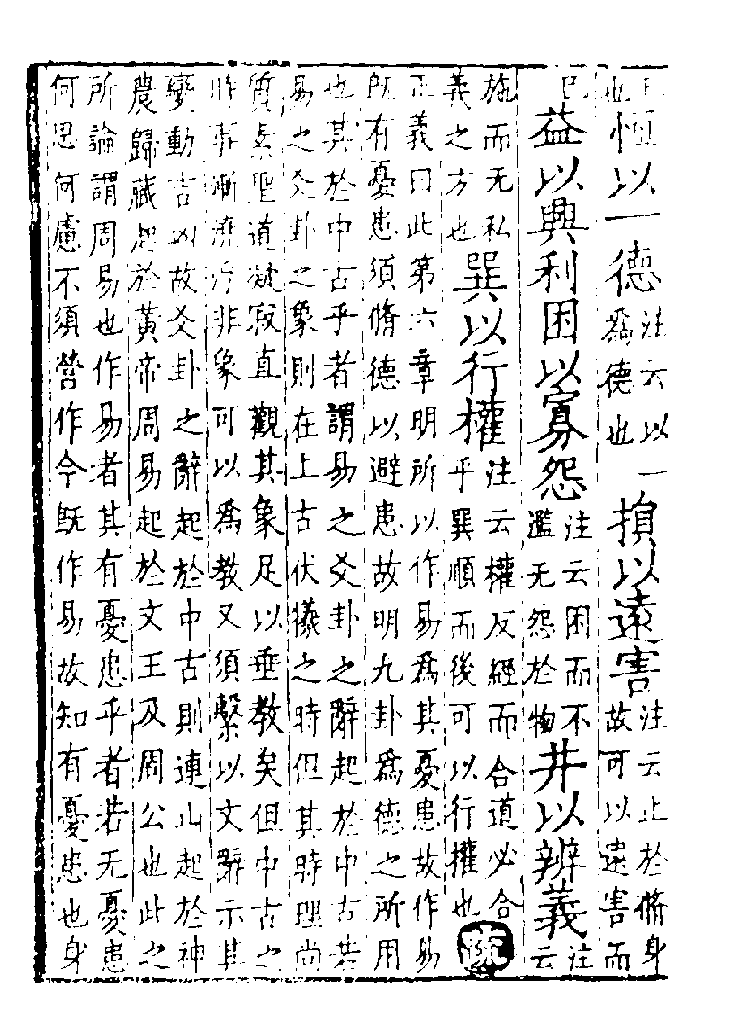 也恒以一德注云以一爲德也損以遠害注云止於脩身故可以遠害而
已益以興利困以寡怨注云困而不濫无怨於物井以辨義注云
施而无私義之方也巽以行權注云權反經而合道必合乎巽順而後可以行權也疏
正義曰此第六章明所以作易爲其憂患故作易
既有憂患須脩德以避患故明九卦爲德之所用
也其於中古乎者謂易之爻卦之辭起於中古若
易之爻卦之象則在上古伏犧之時但其時理尚
質素聖道凝寂直觀其象足以垂教矣但中古之
時事漸澆浮非象可以爲教又須繫以文辭示其
變動吉凶故爻卦之辭起於中古則連山起於神
農歸藏起於黃帝周易起於文王及周公也此之
所論謂周易也作易者其有憂患乎者若无憂患
何思何慮不須營作今既作易故知有憂患也身